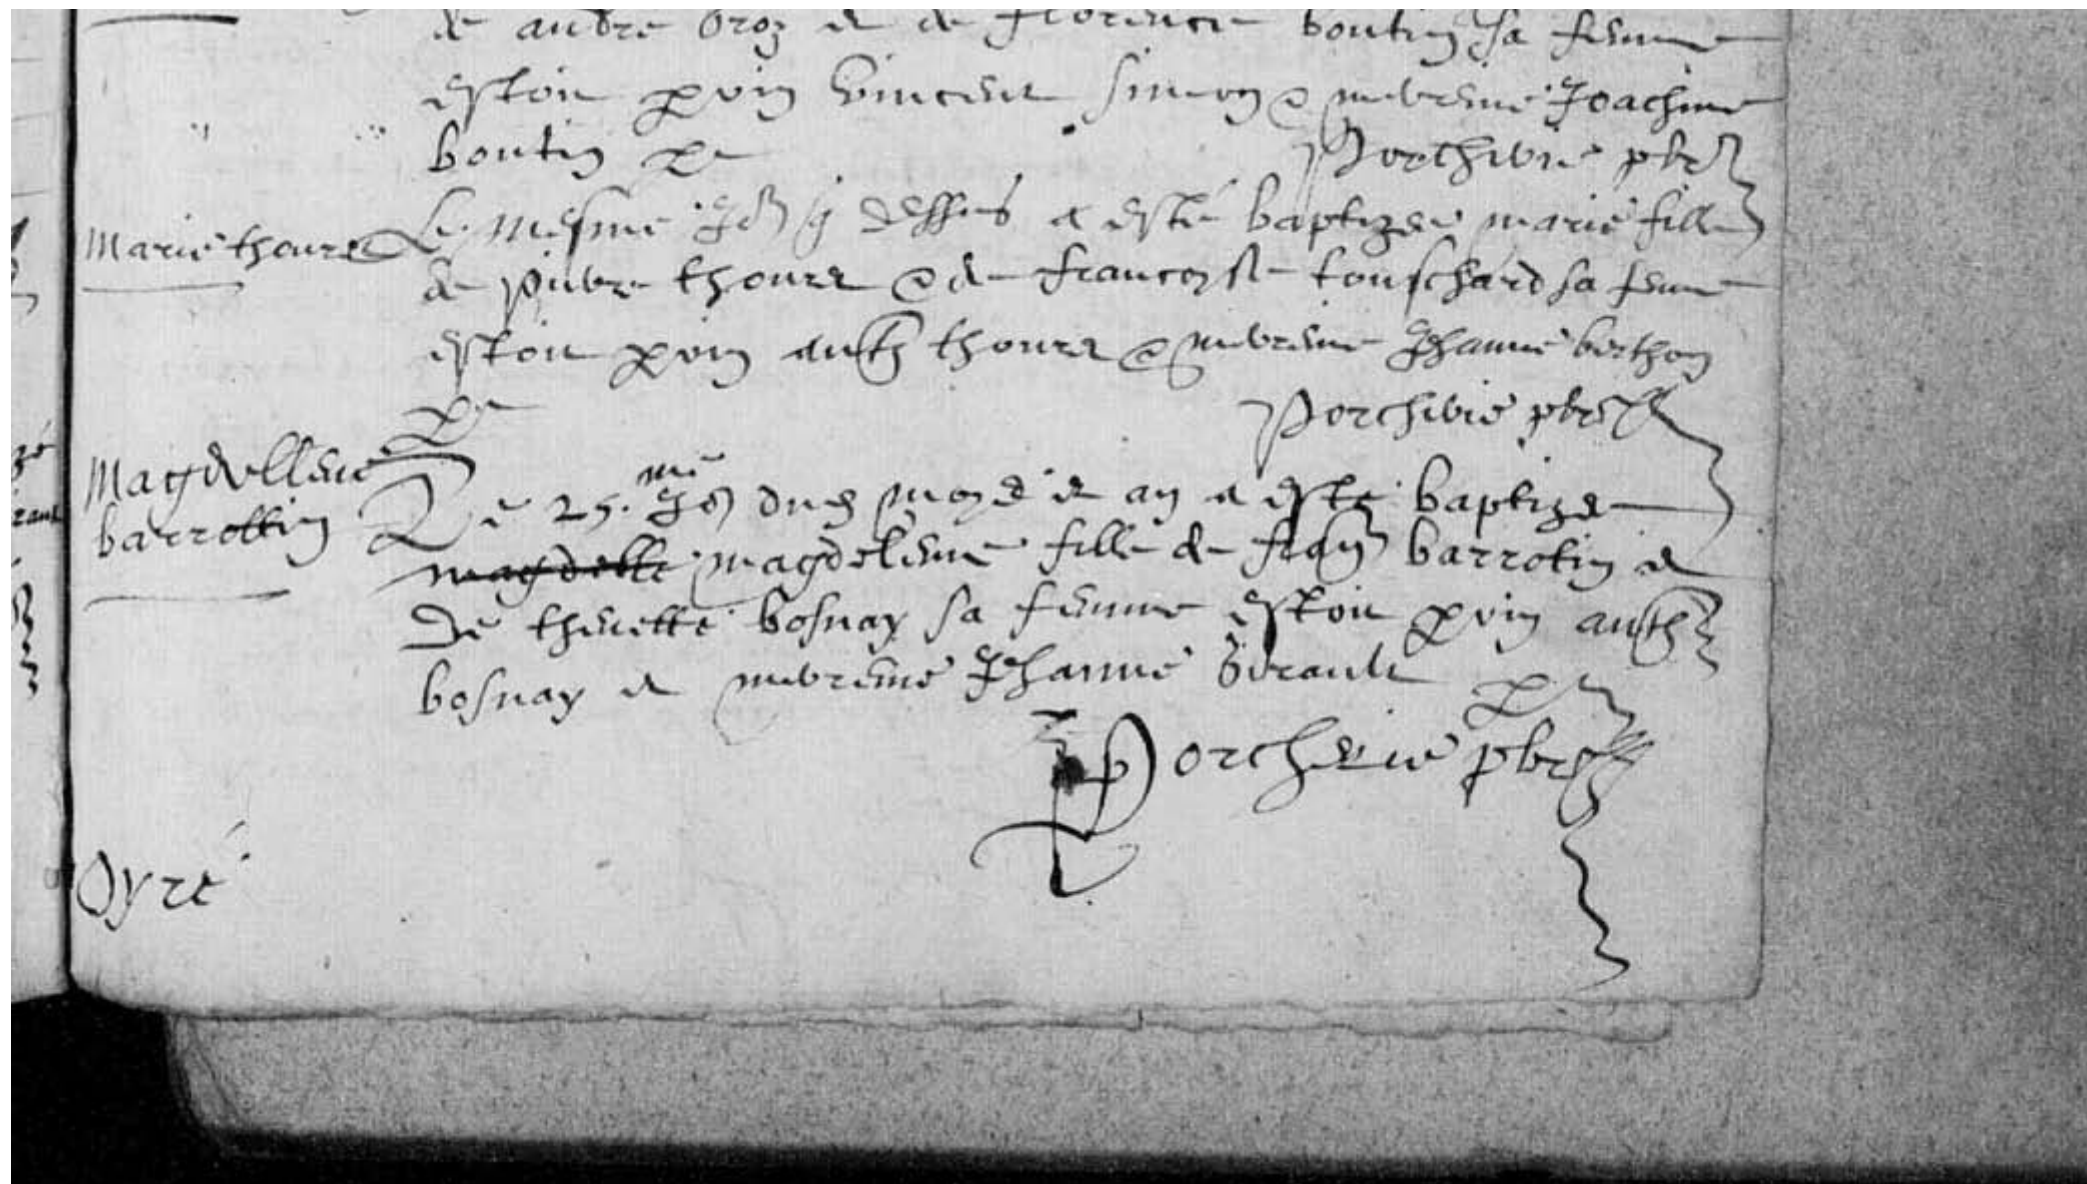 de andre broz et de florence boutin sa femme
estoit parin vincent simon & mareine Joachine
boutin
porcherie pbre
Marie thoure
Le mesme Jor dessus a esté baptizee marie fille
de pierre thoure & de francoyse touschard sa feme
estoit parin anth thoure & mareine Jehanne berthon
porcherie pbre
Magdellene
barrottin
Le 25. me Jor dud moys et an a este baptizee
magdelle magdelene fille de fran barrotin et
de thenette bosnay sa femme estoit parin anth
bosnay et mareine Jehanne
porcherie pbre
Oyré